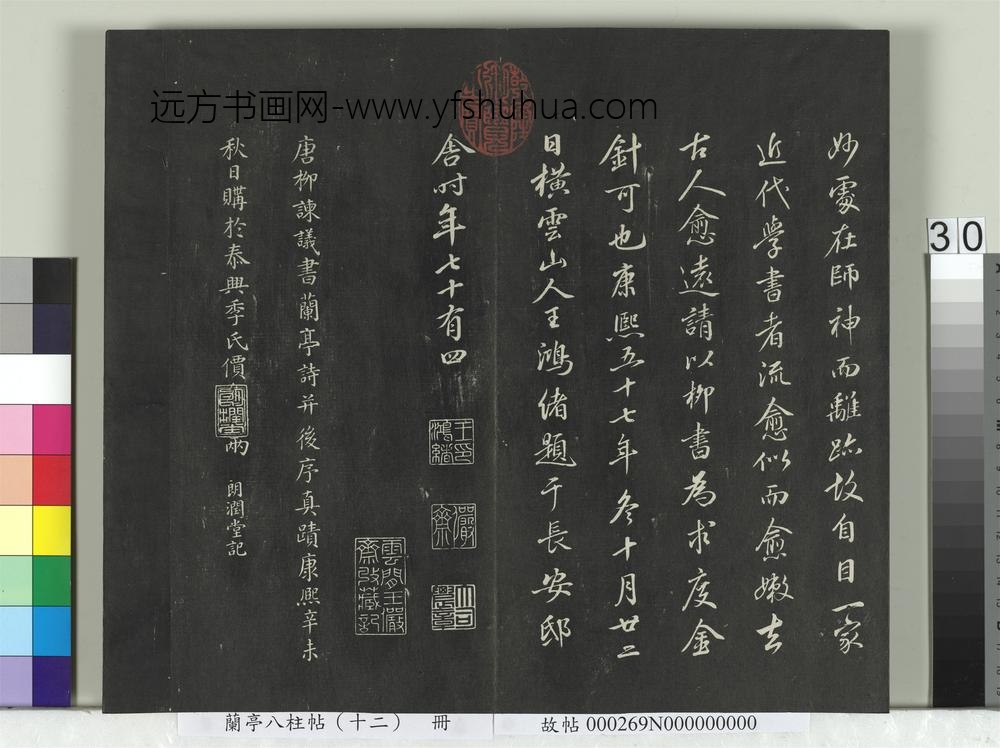 远方书画网-www.yfshuhua.com
妙處在師神而離跡故自目一家
近代學書者流愈似而愈嫩去
古人愈遠請以柳書為求度金
針可也康熙五十七年冬十月廿二
日橫雲山人王鴻緒題于長安邸
舍时年七十有四
王印
鴻緒
儼
齋
雲間王儼
齋收藏記
唐柳諫議書蘭亭詩并後序真蹟康熙辛未
秋日購於泰興季氏價
兩
朗潤堂記
30
蘭亭八柱帖(十二) 冊
故帖 000269N000000000